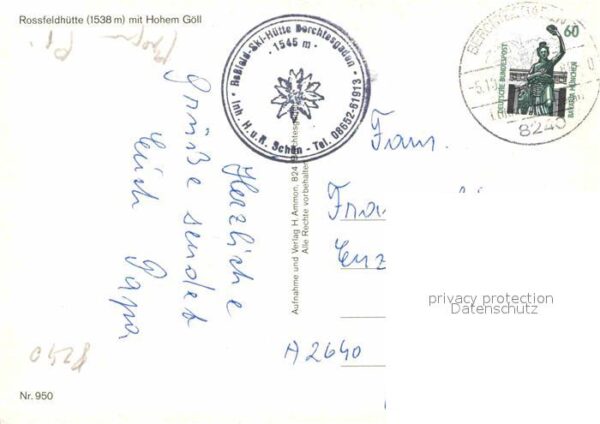 Rossfeldhütte (1538 m) mit Hohem Göll
Roßfeld-Ski-Hütte Berchtesgaden
· 1545 m ·
Inh. H. u. R. Schön - Tel. 08652-61913
60
DEUTSCHE BUNDESPOST
BAVARIA MÜNCHEN
8240
Herzliche
Grüße sendet
Euch Papa
Aufnahme und Verlag H. Ammon, 824 Berchtesgaden
Alle Rechte vorbehalten
Fam.
Fra
Enz
A 2640
privacy protection
Datenschutz
8240
Nr. 950